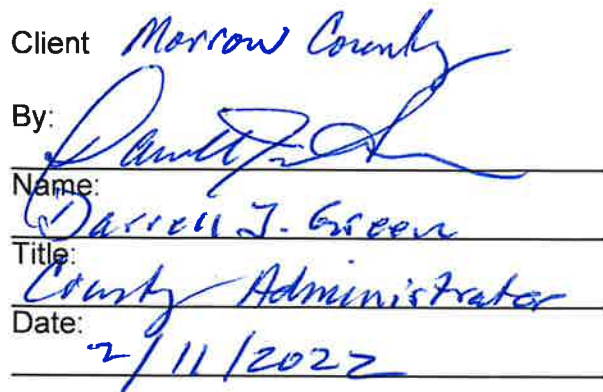 Client Morrow County
By:
Name:
Darrell J. Green
Title:
County Administrator
Date:
2/11/2022